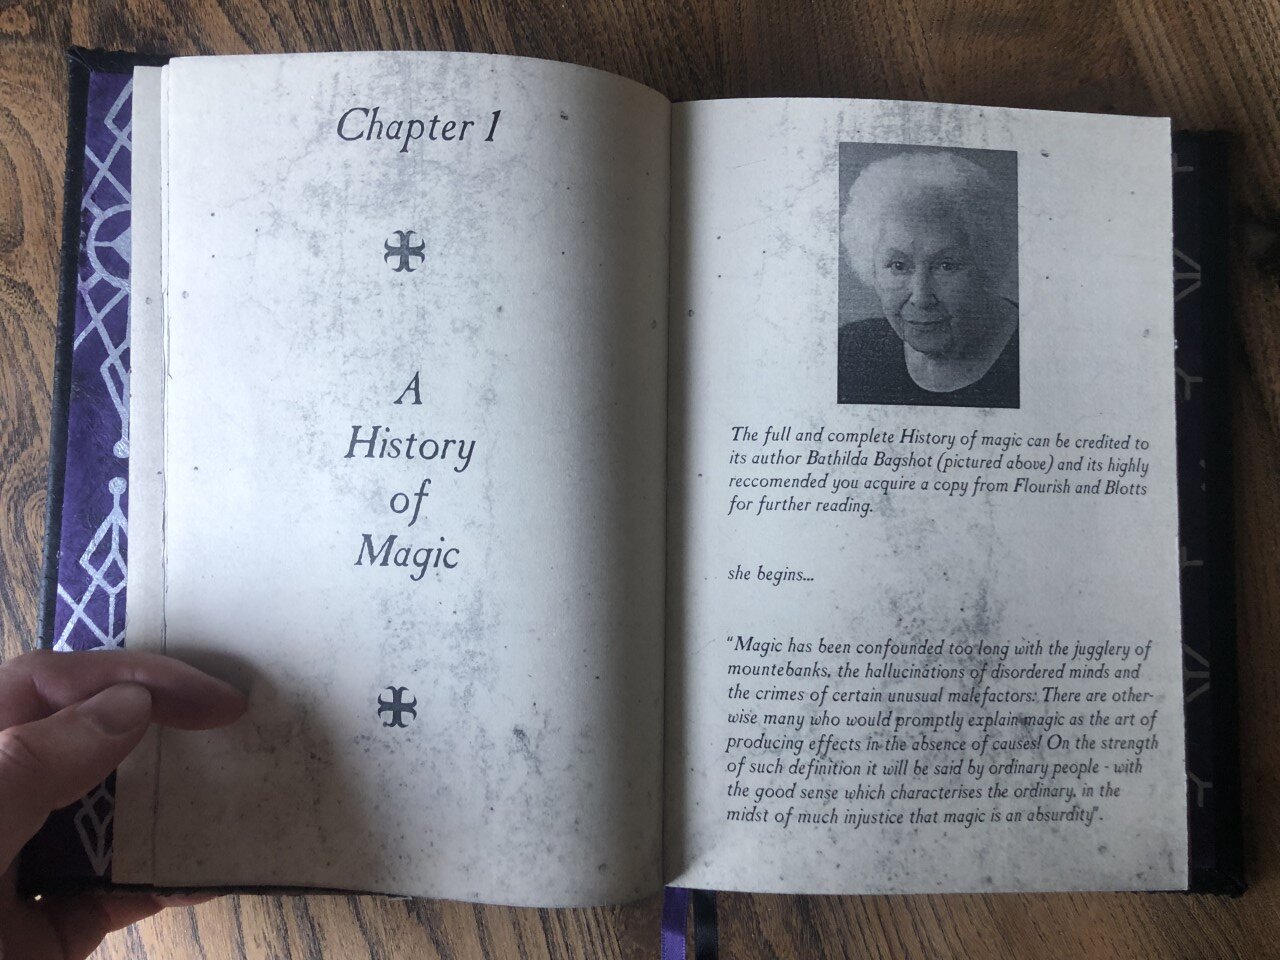 Chapter 1
A
History
of
Magic
The full and complete History of magic can be credited to
its author Bathilda Bagshot (pictured above) and its highly
reccomended you acquire a copy from Flourish and Blotts
for further reading.
she begins...
"Magic has been confounded too long with the jugglery of
mountebanks, the hallucinations of disordered minds and
the crimes of certain unusual malefactors: There are other-
wise many who would promptly explain magic as the art of
producing effects in the absence of causes! On the strength
of such definition it will be said by ordinary people - with
the good sense which characterises the ordinary, in the
midst of much injustice that magic is an absurdity".